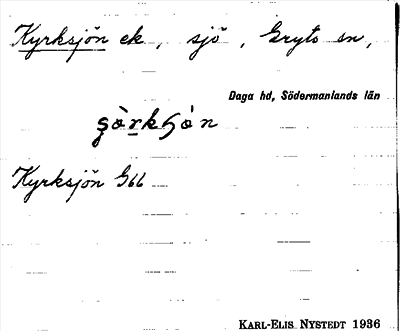 Kyrksjön ek, sjö, Gryts sn,
Daga hd, Södermanlands län
Kyrksjön G66
KARL-ELIS NYSTEDT 1936